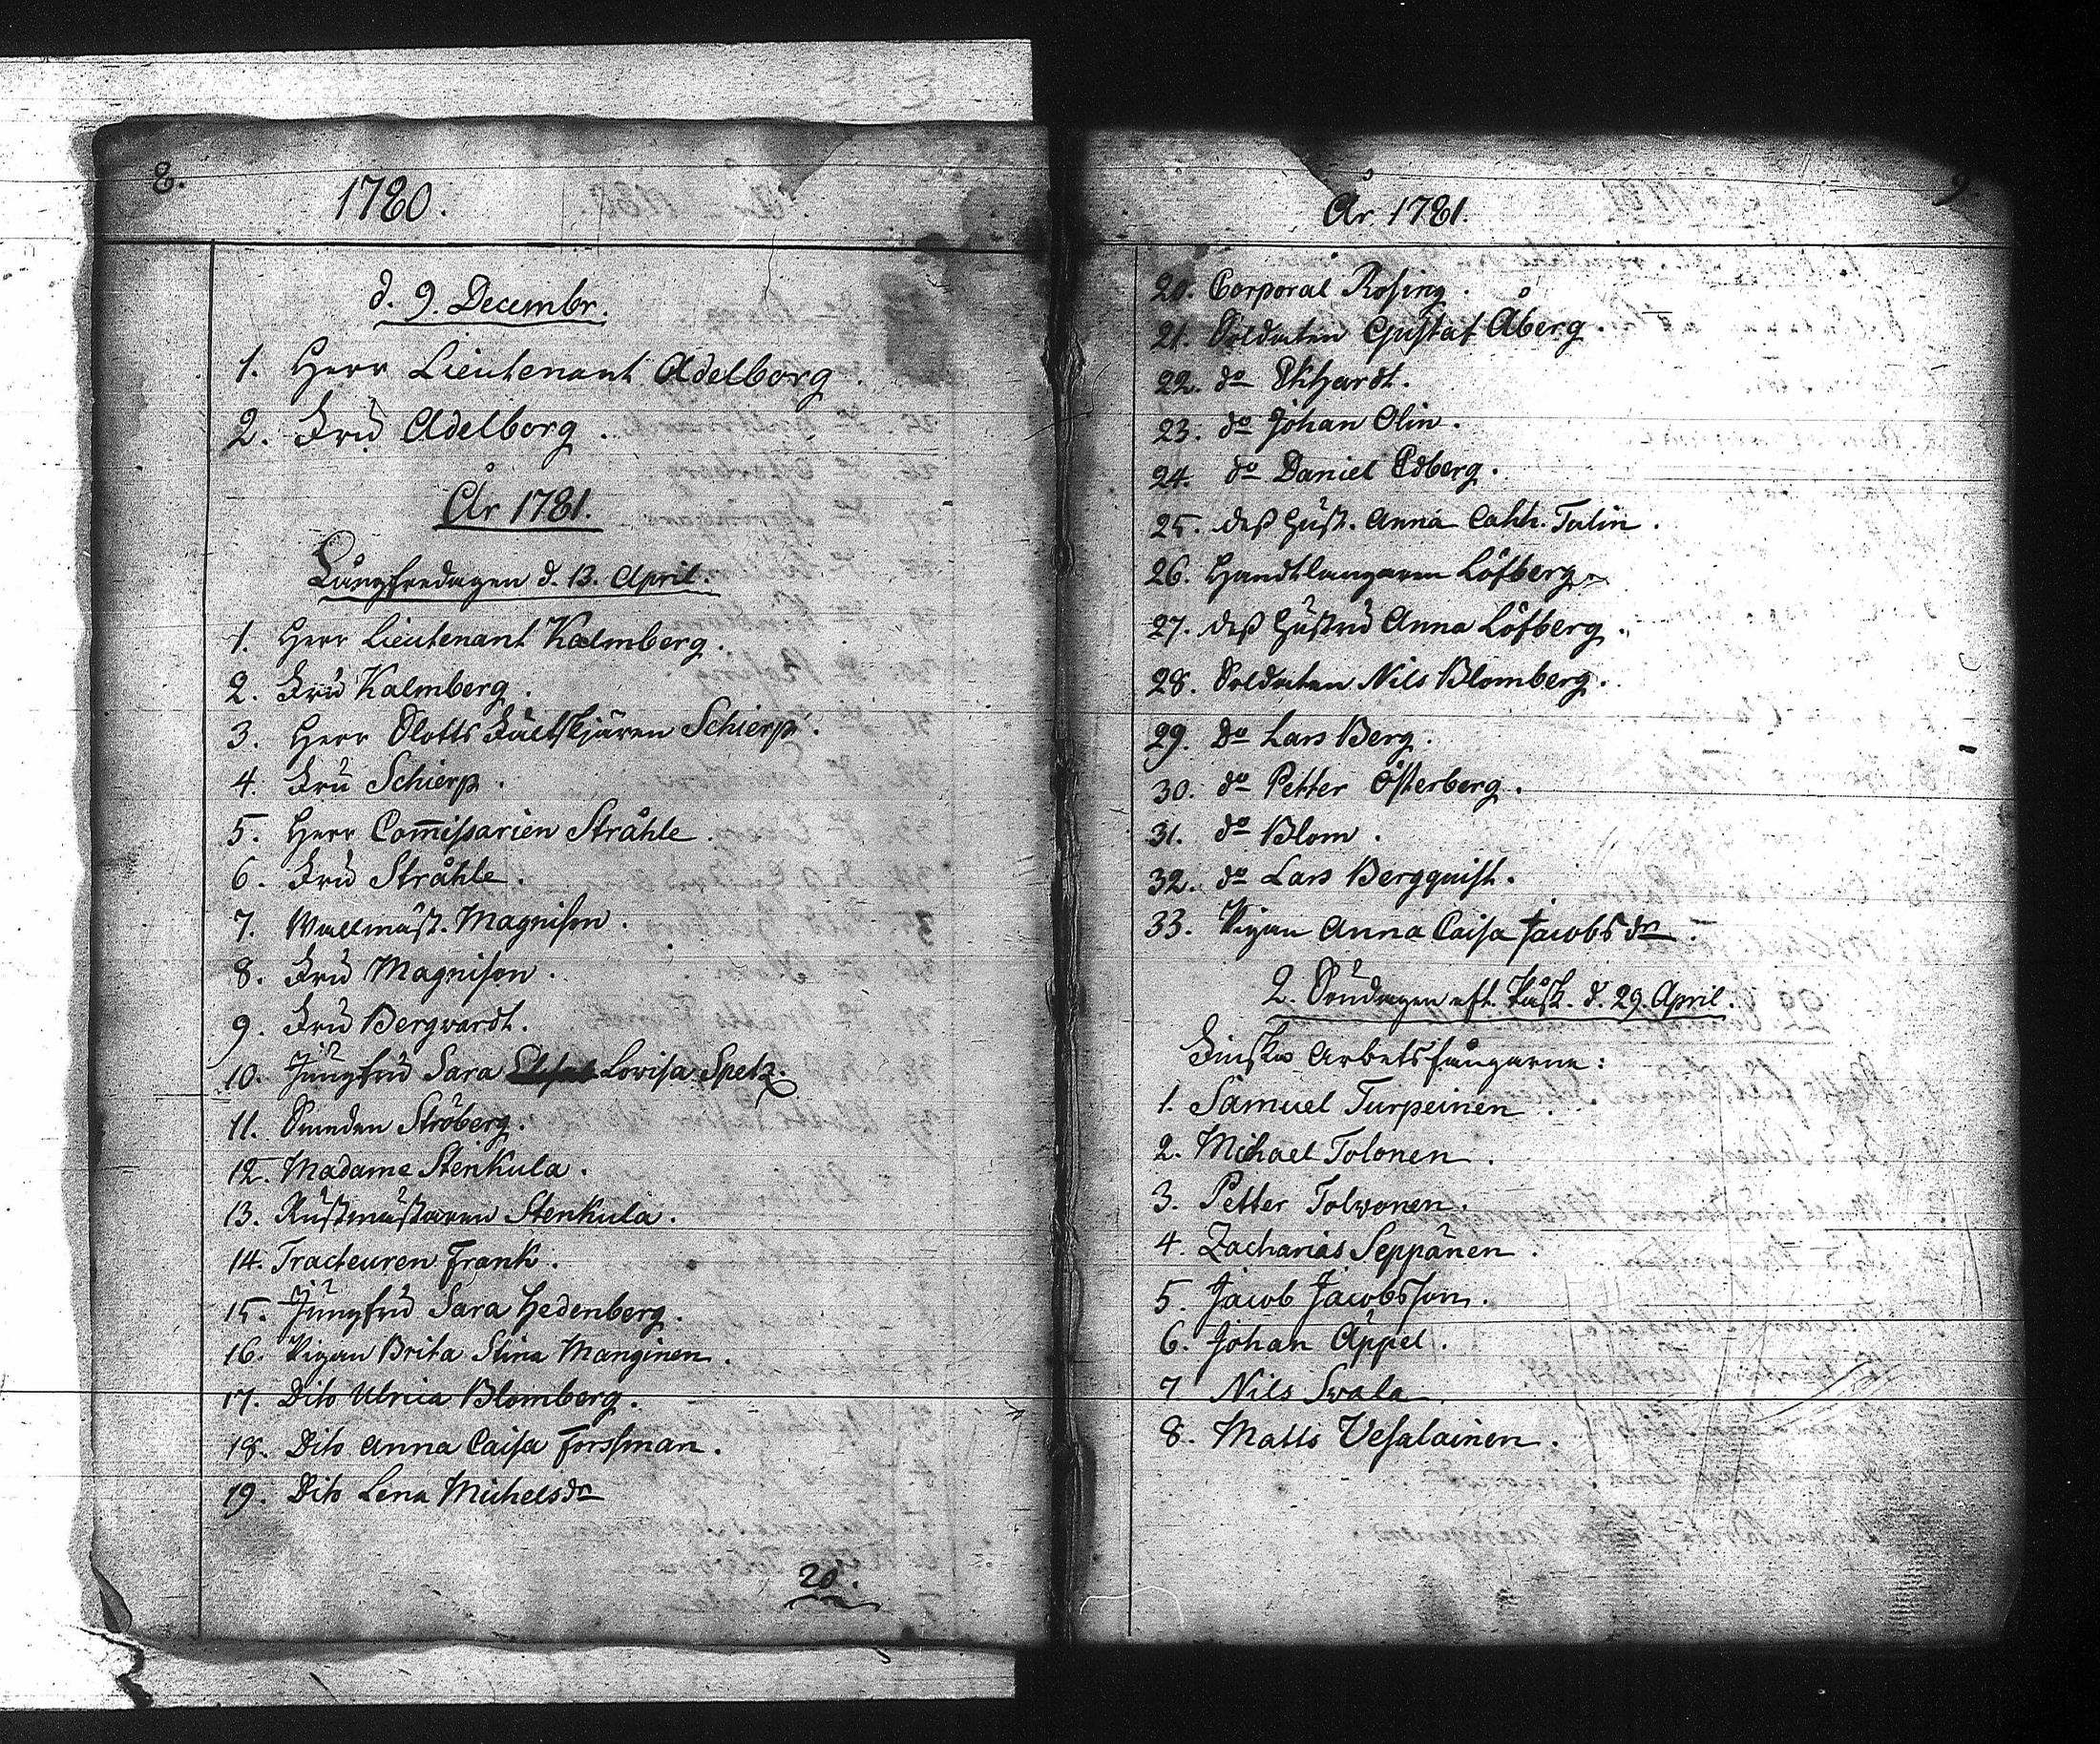 8.
1780.
d. 9. Decembr.
1. Herr Lieutenant Adelborg.
2. Fru Adelborg.
År 1781.
Långfredagen d. 13. April.
1. Herr Lieutenant Kalmberg.
2. Fru Kalmberg.
3. Herr Slotts Fältskjären Schierp.
4. Fru Schierp.
5. Herr Com̅issarien Stråhle.
6. Fru Stråhle.
7. Wallmäst. Magnison.
8. Fru Magnison.
9. Fru Bergvardt.
10. Jungfru Sara Lovisa Spetz.
11. Smeden Ströberg.
12. Madame Stenkula.
13. Rustmästaren Stenkula.
14. Tracteuren Frank.
15. Jungfru Sara Hedenberg.
16. Pigan Brita Stina Manginen.
17. Dito Ulrica Blomberg.
18. Dito Anna Caisa Forssman.
19. Dito Lena Michelsdr
20.
9.
År 1781.
20. Corporal Rosing.
21. Soldaten Gustaf Åberg.
22. do Ekhardt.
23. do Johan Olin.
24. do Daniel Edberg.
25. dess Hust. Anna Cath. Talin.
26. Handtlangaren Löfberg.
27. dess Hustru Anna Löfberg.
28. Soldaten Nils Blomberg.
29. Do Lars Berg.
30. do Petter Österberg.
31. do Blom.
32. do Lars Bergquist.
33. Pigan Anna Caisa Jacobsdr.
2. Söndagen eft. Påsk. d. 29. April.
Finska Arbetsfångarne:
1. Samuel Turpeinen.
2. Michael Tolonen.
3. Petter Tolwonen.
4. Zacharias Seppänen.
5. Jacob Jacobsson.
6. Johan Äppel.
7 Nils Svala
8. Matts Vesalainen.